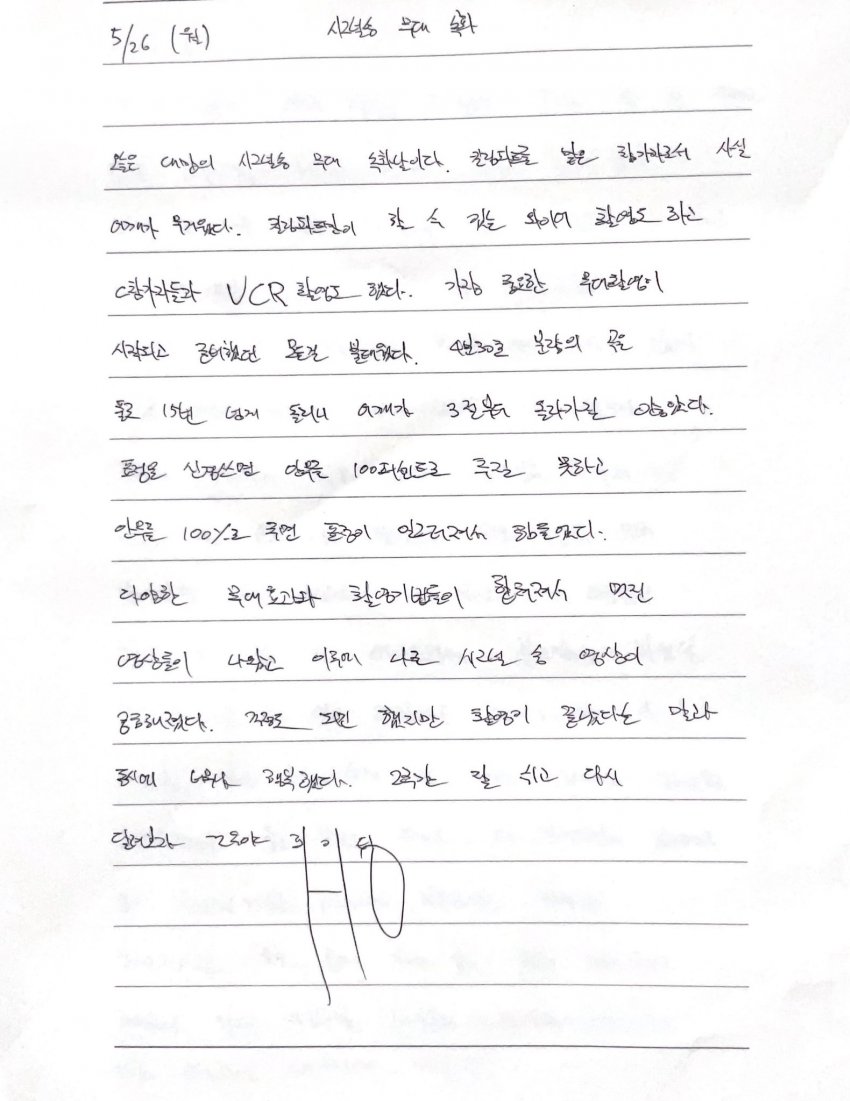 5/26 (월) 시그널송 무대 녹화
오늘은 대망의 시그널송 무대 녹화날이다. 킬링파트를 맡은 참가자로서 사실
어깨가 무거웠다. 킬링파트만이 할 수 있는 와이어 촬영도 하고
C참가자들과 VCR 촬영도 했다. 가장 중요한 무대촬영이
시작되고 준비했던 모든걸 불태웠다. 4분30초 분량의 곡을
풀로 15번 넘게 돌리니 어깨가 3절부터 올라가질 않았다.
표정을 신경쓰면 안무를 100퍼센트로 추질 못하고
안무를 100%로 추면 표정이 일그러져서 힘들었다.
다양한 무대효과와 촬영기법들이 합쳐져서 멋진
영상들이 나왔고 이후에 나올 시그널 송 영상이
궁금해졌다. 걱정도 되긴 했지만 촬영이 끝났다는 말과
동시에 너무나 행복했다. 2주간 잘 쉬고 다시
달려보자